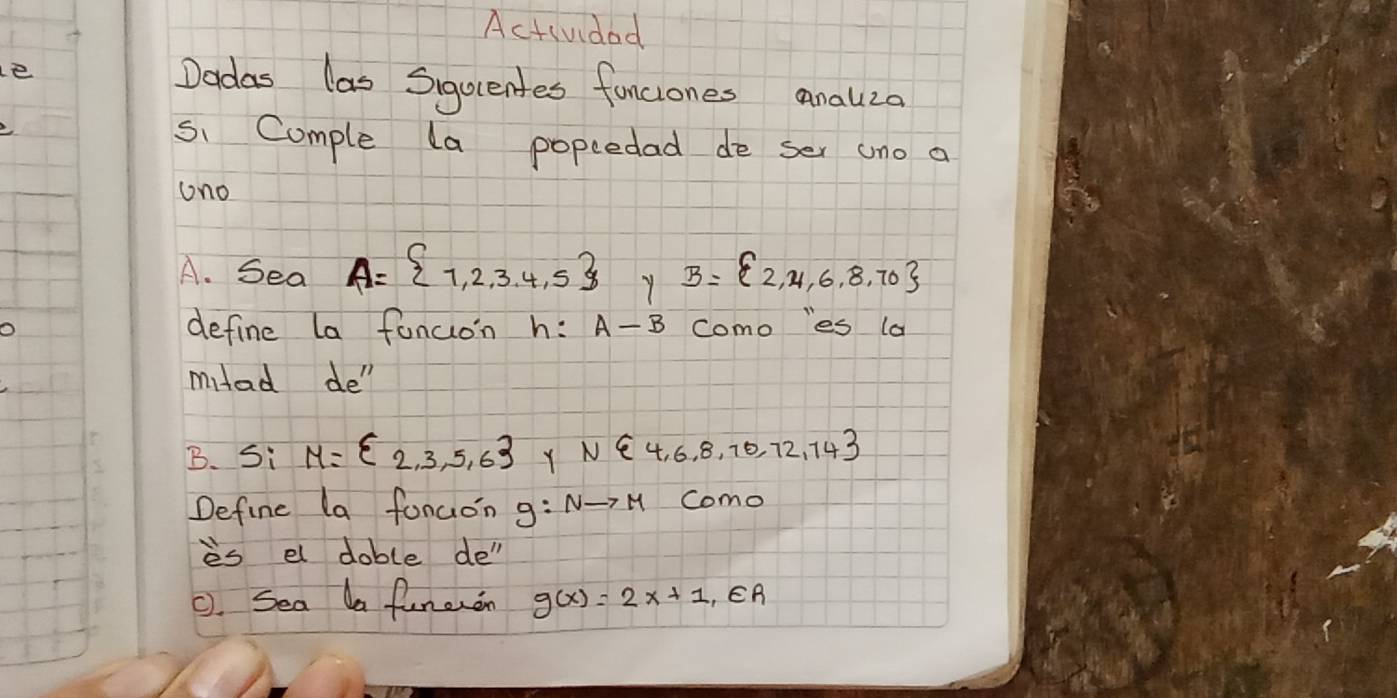 Actividad
Dadas las Siguientes funciones analiza
si Cumple la popiedad de ser uno a
uno
A. Sea A = {1,2,3.4,5} y B = {2,4,6,8,10}
define la función h: A - B como "es la
mitad de"
B. Si M = {2,3,5,6} y N {4,6,8,10,12,14}
Define la función g: N → M como
"es el doble de"
C). Sea la función g(x) = 2x + 1, ∈ R